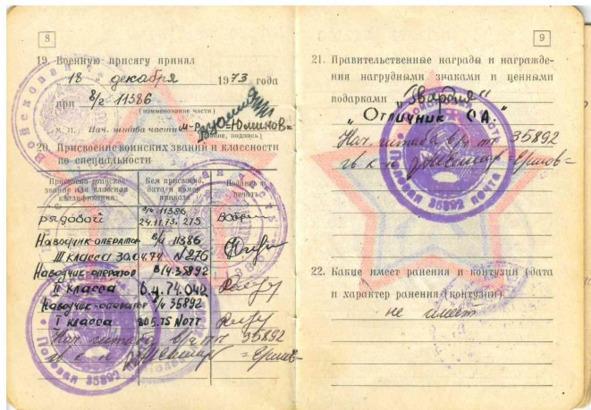 8
19. Военную присягу принял
18 декабря 1973 года
при В/ч 11386
(наименование части)
М. П. Нач. штаба части м-р =Юминов=
20. Присвоение воинских званий и классности
по специальности
Присвоено воинское
звание или классная
квалификация
Кем присвоено,
дата и номер
приказа
Подпись и
печать
рядовой В/ч 11386
24.11.73. 275
Наводчик-оператор В/ч 11386
III класса 30.04.74 №276
Наводчик-оператор В/ч 35892
II класса 042
Наводчик-оператор В/ч 35892
I класса №077
Нач. штаба в/ч пп 35892
гв к-н
Полевая почта 35892
9
21. Правительственные награды и награжде-
ния нагрудными знаками и ценными
подарками „Гвардия"
„Отличник СА"
Нач. штаба в/ч пп 35892
гв к-н
Полевая почта 35892
22. Какие имеет ранения и контузии (дата
и характер ранения (контузии)
не имеет